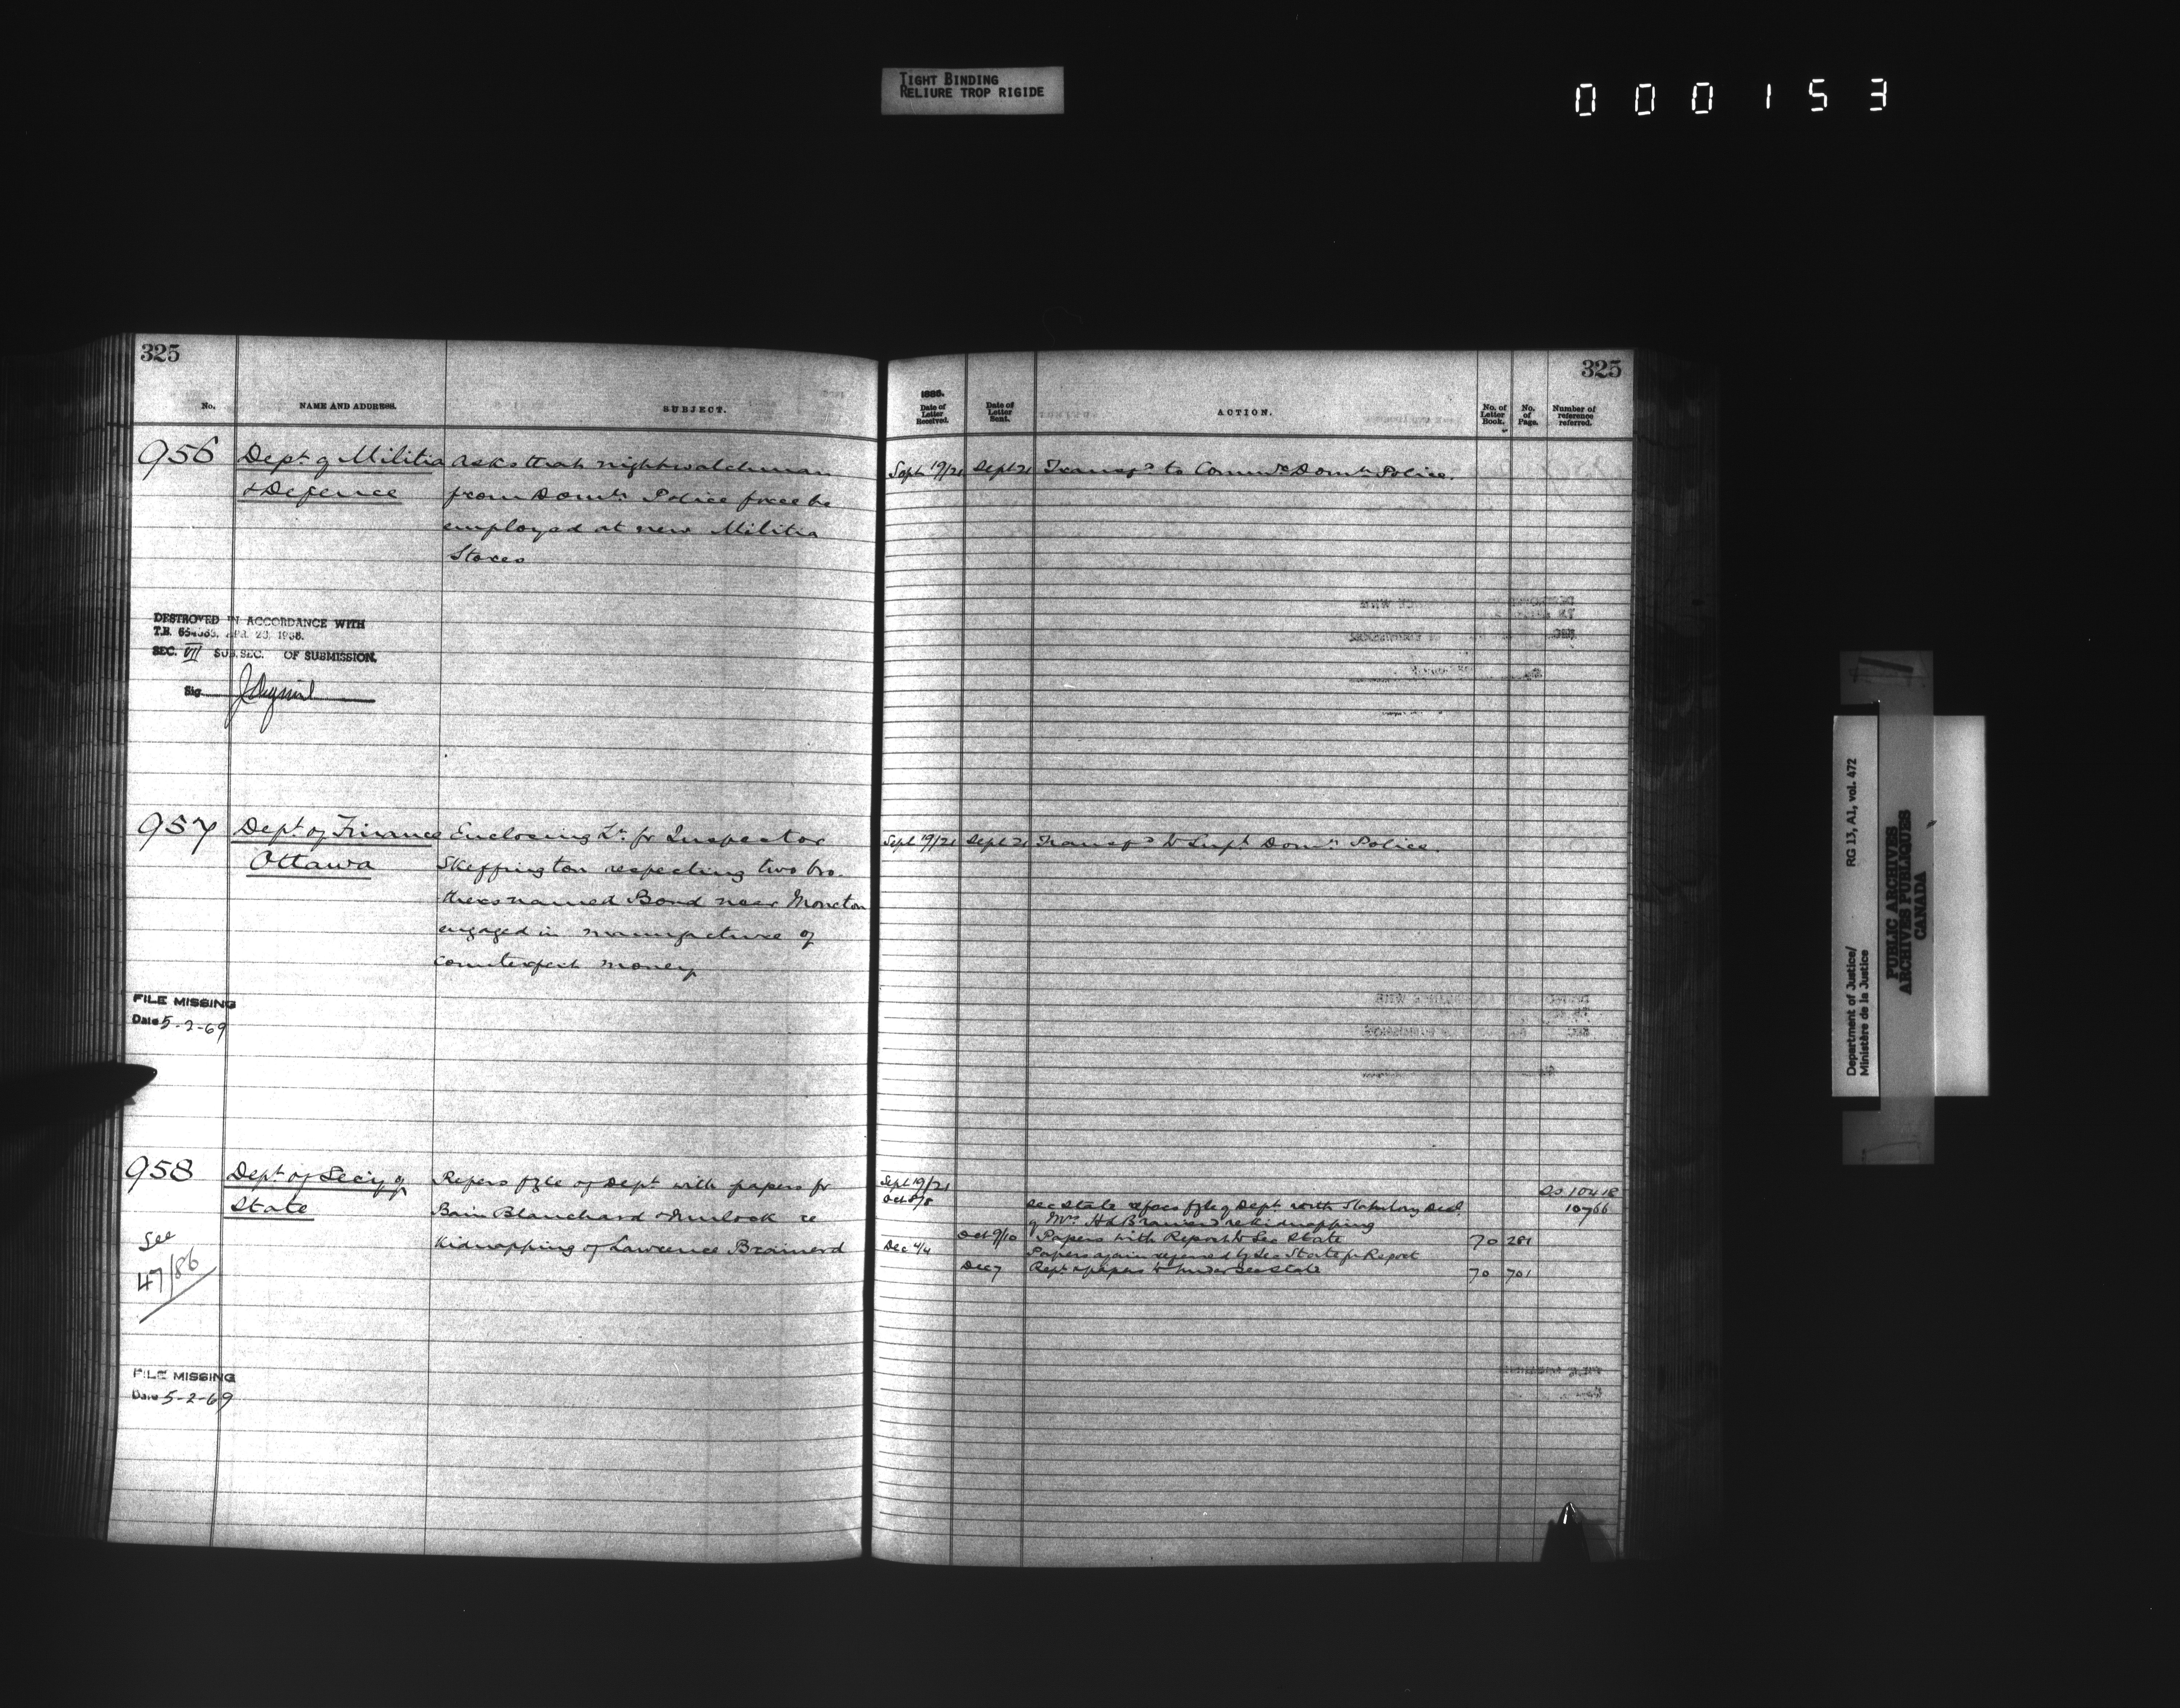 TIGHT BINDING
RELIURE TROP RIGIDE
000153
325
No.
NAME AND ADDRESS.
SUBJECT.
956
Dept. of Militia
& Defence
Asks that nightwatchman
from Domn. Police force be
employed at new Militia
Stores
DESTROYED IN ACCORDANCE WITH
T.B. 654365, APR. 23, 1958.
SEC. VII SUB. SEC. OF SUBMISSION.
Sig.
957
Dept. of Finance
Ottawa
Enclosing Lr. fr Inspector
Skeffington respecting two bro.
thers named Bond near Moncton
engaged in manufacture of
counterfeit money
FILE MISSING
Date 5-2-69
958
Dept of Secy of
State
See
47/86
Refers fyle of Dept with papers fr
Bain Blanchard & Mulock re
Kidnapping of Lawrence Brainerd
FILE MISSING
Date 5-2-69
325
1886.
Date of
Letter
Received.
Date of
Letter
Sent.
ACTION.
No. of
Letter
Book.
No.
of
Page.
Number of
reference
referred.
Sept 19/21 Sept 21 Transfd to Commr Domn Police.
Sept 19/21 Sept 21 Transfd to Supt Domn Police.
Sept 19/21
10418
Oct 8/8 Sec State refers fyle of Dept with Statutory Decl. 10766
of Mrs. H L Brainerd re kidnapping
Oct 9/10 Papers with Report to Sec State 70 281
Dec 4/4 Papers again referred by Sec State for Report
Dec 7 Rept & papers to Under Sec State 70 701
Department of Justice/
Ministère de la Justice
RG 13, A1, vol. 472
PUBLIC ARCHIVES
ARCHIVES PUBLIQUES
CANADA